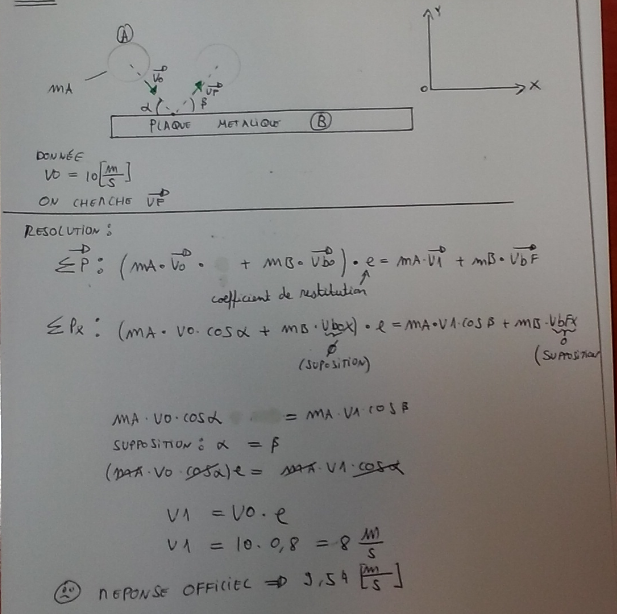 A
Y
V0
VF
MA
α
β
O
X
PLAQUE METALIQUE B
DONNÉE
V0 = 10 [m/s]
ON CHERCHE VF
RESOLUTION :
ΣP : (MA · V0 · + MB · Vb0) · e = MA · V1 + MB · VbF
coefficient de restitution
ΣPx : (MA · V0 · cos α + MB · Vb0x) · e = MA · V1 · cos β + MB · VbFx
0
0
(SUPOSITION)
(SUPPOSITION
MA · V0 · cos α = MA · V1 cos β
SUPPOSITION : α = β
(MA · V0 · cos α) e = MA · V1 · cos α
V1 = V0 · e
V1 = 10 · 0,8 = 8 m/s
REPONSE OFFICIEL ⇒ 9,54 [m/s]